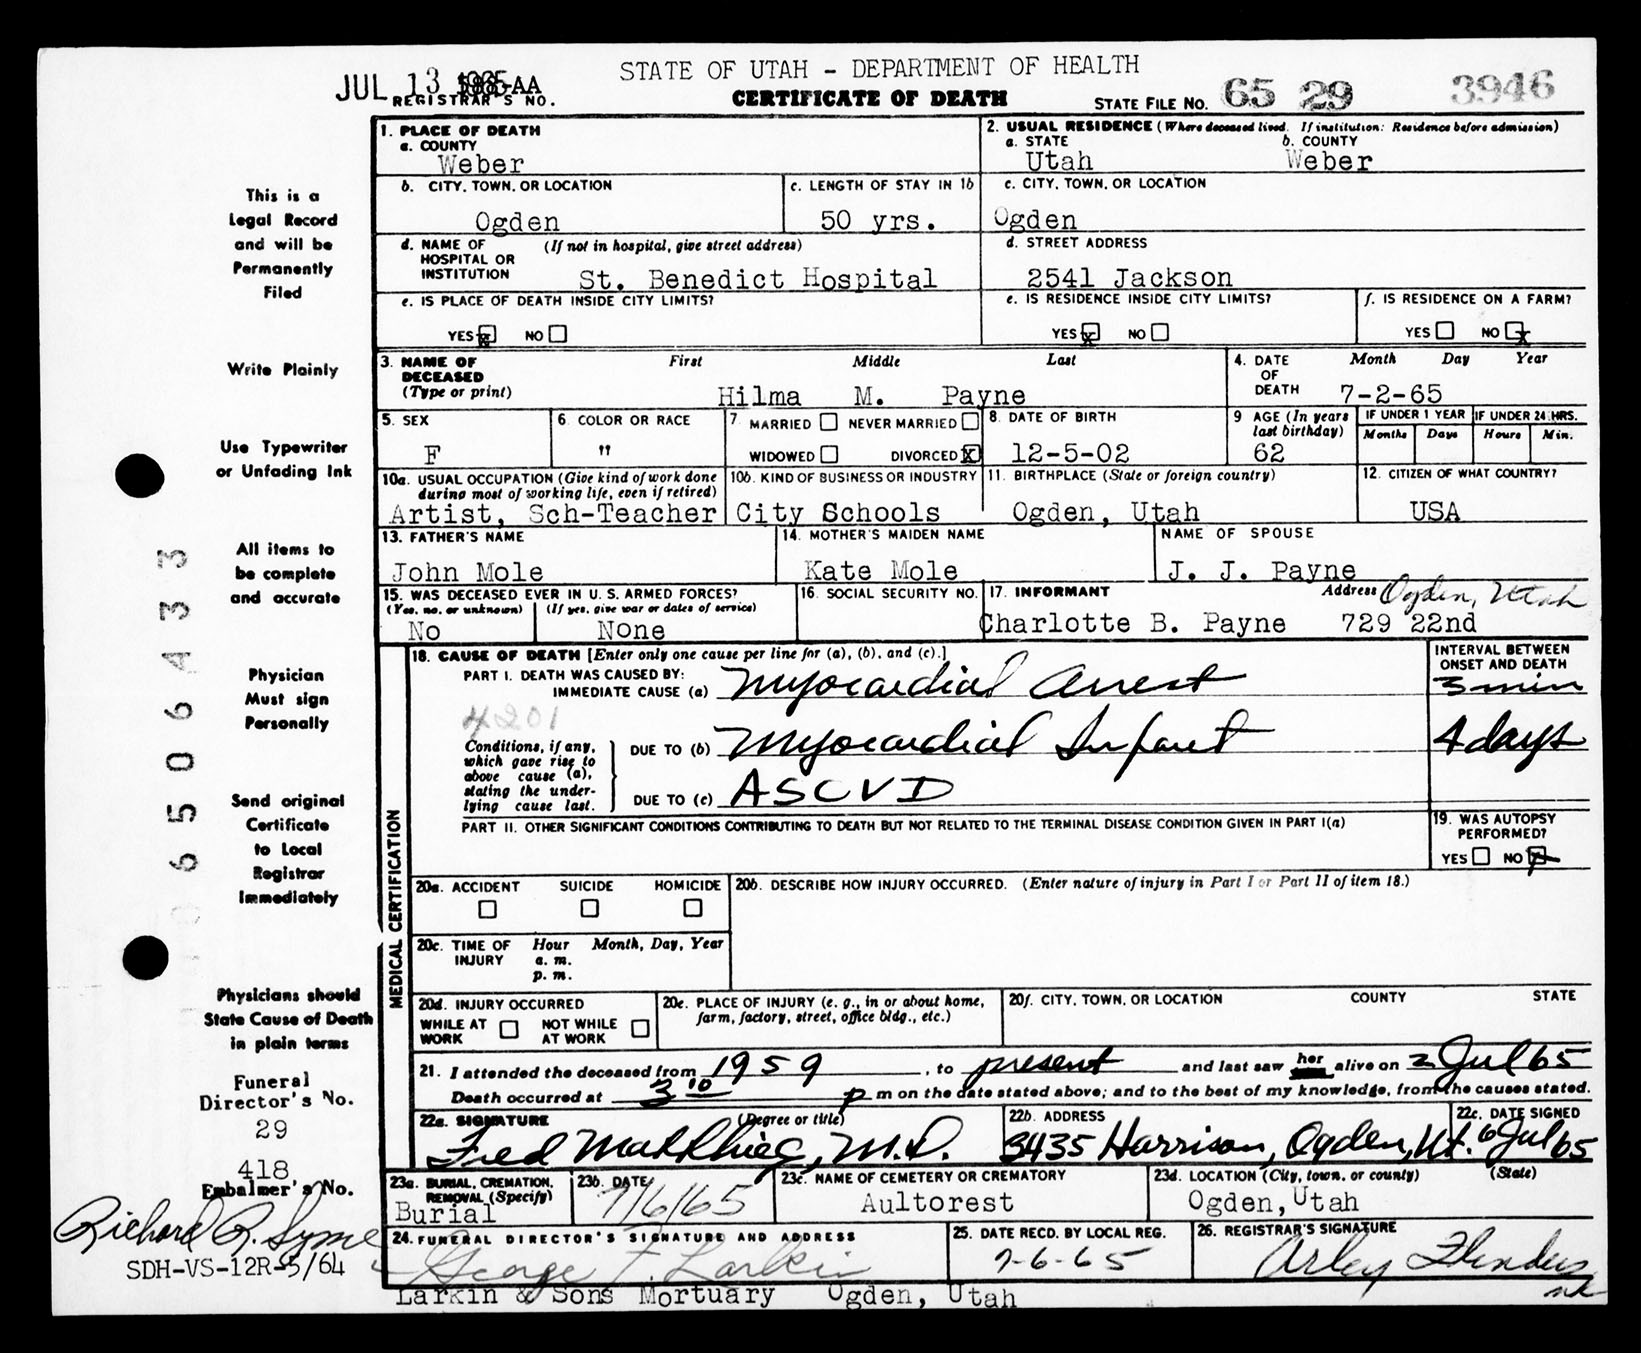 STATE OF UTAH - DEPARTMENT OF HEALTH
JUL 13 1965
REGISTRAR'S NO.
CERTIFICATE OF DEATH
STATE FILE NO. 65 29 3946
1. PLACE OF DEATH
a. COUNTY
Weber
2. USUAL RESIDENCE (Where deceased lived. If institution: Residence before admission)
a. STATE
Utah
b. COUNTY
Weber
b. CITY, TOWN, OR LOCATION
Ogden
c. LENGTH OF STAY IN 1b
50 yrs.
c. CITY, TOWN, OR LOCATION
Ogden
d. NAME OF HOSPITAL OR INSTITUTION
(If not in hospital, give street address)
St. Benedict Hospital
d. STREET ADDRESS
2541 Jackson
e. IS PLACE OF DEATH INSIDE CITY LIMITS?
YES x NO
e. IS RESIDENCE INSIDE CITY LIMITS?
YES x NO
f. IS RESIDENCE ON A FARM?
YES NO x
3. NAME OF DECEASED (Type or print)
First Middle Last
Hilma M. Payne
4. DATE OF DEATH
Month Day Year
7-2-65
5. SEX
F
6. COLOR OR RACE
"
7. MARRIED NEVER MARRIED
WIDOWED DIVORCED X
8. DATE OF BIRTH
12-5-02
9 AGE (In years last birthday)
62
IF UNDER 1 YEAR
Months Days
IF UNDER 24 HRS.
Hours Min.
10a. USUAL OCCUPATION (Give kind of work done during most of working life, even if retired)
Artist, Sch-Teacher
10b. KIND OF BUSINESS OR INDUSTRY
City Schools
11. BIRTHPLACE (State or foreign country)
Ogden, Utah
12. CITIZEN OF WHAT COUNTRY?
USA
13. FATHER'S NAME
John Mole
14. MOTHER'S MAIDEN NAME
Kate Mole
NAME OF SPOUSE
J. J. Payne
15. WAS DECEASED EVER IN U.S. ARMED FORCES?
(Yes, no, or unknown)
No
(If yes, give war or dates of service)
None
16. SOCIAL SECURITY NO.
17. INFORMANT
Address Ogden, Utah
Charlotte B. Payne 729 22nd
MEDICAL CERTIFICATION
18. CAUSE OF DEATH [Enter only one cause per line for (a), (b), and (c).]
INTERVAL BETWEEN ONSET AND DEATH
PART I. DEATH WAS CAUSED BY:
IMMEDIATE CAUSE (a) Myocardial Arrest
3 min
4201
Conditions, if any, which gave rise to above cause (a), stating the underlying cause last.
DUE TO (b) Myocardial Infarct
4 days
DUE TO (c) ASCVD
PART II. OTHER SIGNIFICANT CONDITIONS CONTRIBUTING TO DEATH BUT NOT RELATED TO THE TERMINAL DISEASE CONDITION GIVEN IN PART I(a)
19. WAS AUTOPSY PERFORMED?
YES NO
20a. ACCIDENT SUICIDE HOMICIDE
20b. DESCRIBE HOW INJURY OCCURRED. (Enter nature of injury in Part I or Part II of item 18.)
20c. TIME OF INJURY
Hour Month, Day, Year
a. m.
p. m.
20d. INJURY OCCURRED
WHILE AT WORK NOT WHILE AT WORK
20e. PLACE OF INJURY (e. g., in or about home, farm, factory, street, office bldg., etc.)
20f. CITY, TOWN, OR LOCATION COUNTY STATE
21. I attended the deceased from 1959, to present and last saw her alive on 2 Jul 65
Death occurred at 3 10 p m on the date stated above; and to the best of my knowledge, from the causes stated.
22a. SIGNATURE (Degree or title)
Fred M.D.
22b. ADDRESS
3435 Harrison, Ogden, Ut.
22c. DATE SIGNED
6 Jul 65
23a. BURIAL, CREMATION, REMOVAL (Specify)
Burial
23b. DATE
7/6/65
23c. NAME OF CEMETERY OR CREMATORY
Aultorest
23d. LOCATION (City, town, or county) (State)
Ogden, Utah
24. FUNERAL DIRECTOR'S SIGNATURE AND ADDRESS
George F. Larkin
Larkin & Sons Mortuary Ogden, Utah
25. DATE RECD. BY LOCAL REG.
7-6-65
26. REGISTRAR'S SIGNATURE
Arley Flinders
This is a
Legal Record
and will be
Permanently
Filed
Write Plainly
Use Typewriter
or Unfading Ink
All items to
be complete
and accurate
Physician
Must sign
Personally
Send original
Certificate
to Local
Registrar
Immediately
Physicians should
State Cause of Death
in plain terms
Funeral
Director's No.
29
418
Embalmer's No.
Richard R. Syme
SDH-VS-12R-5/64